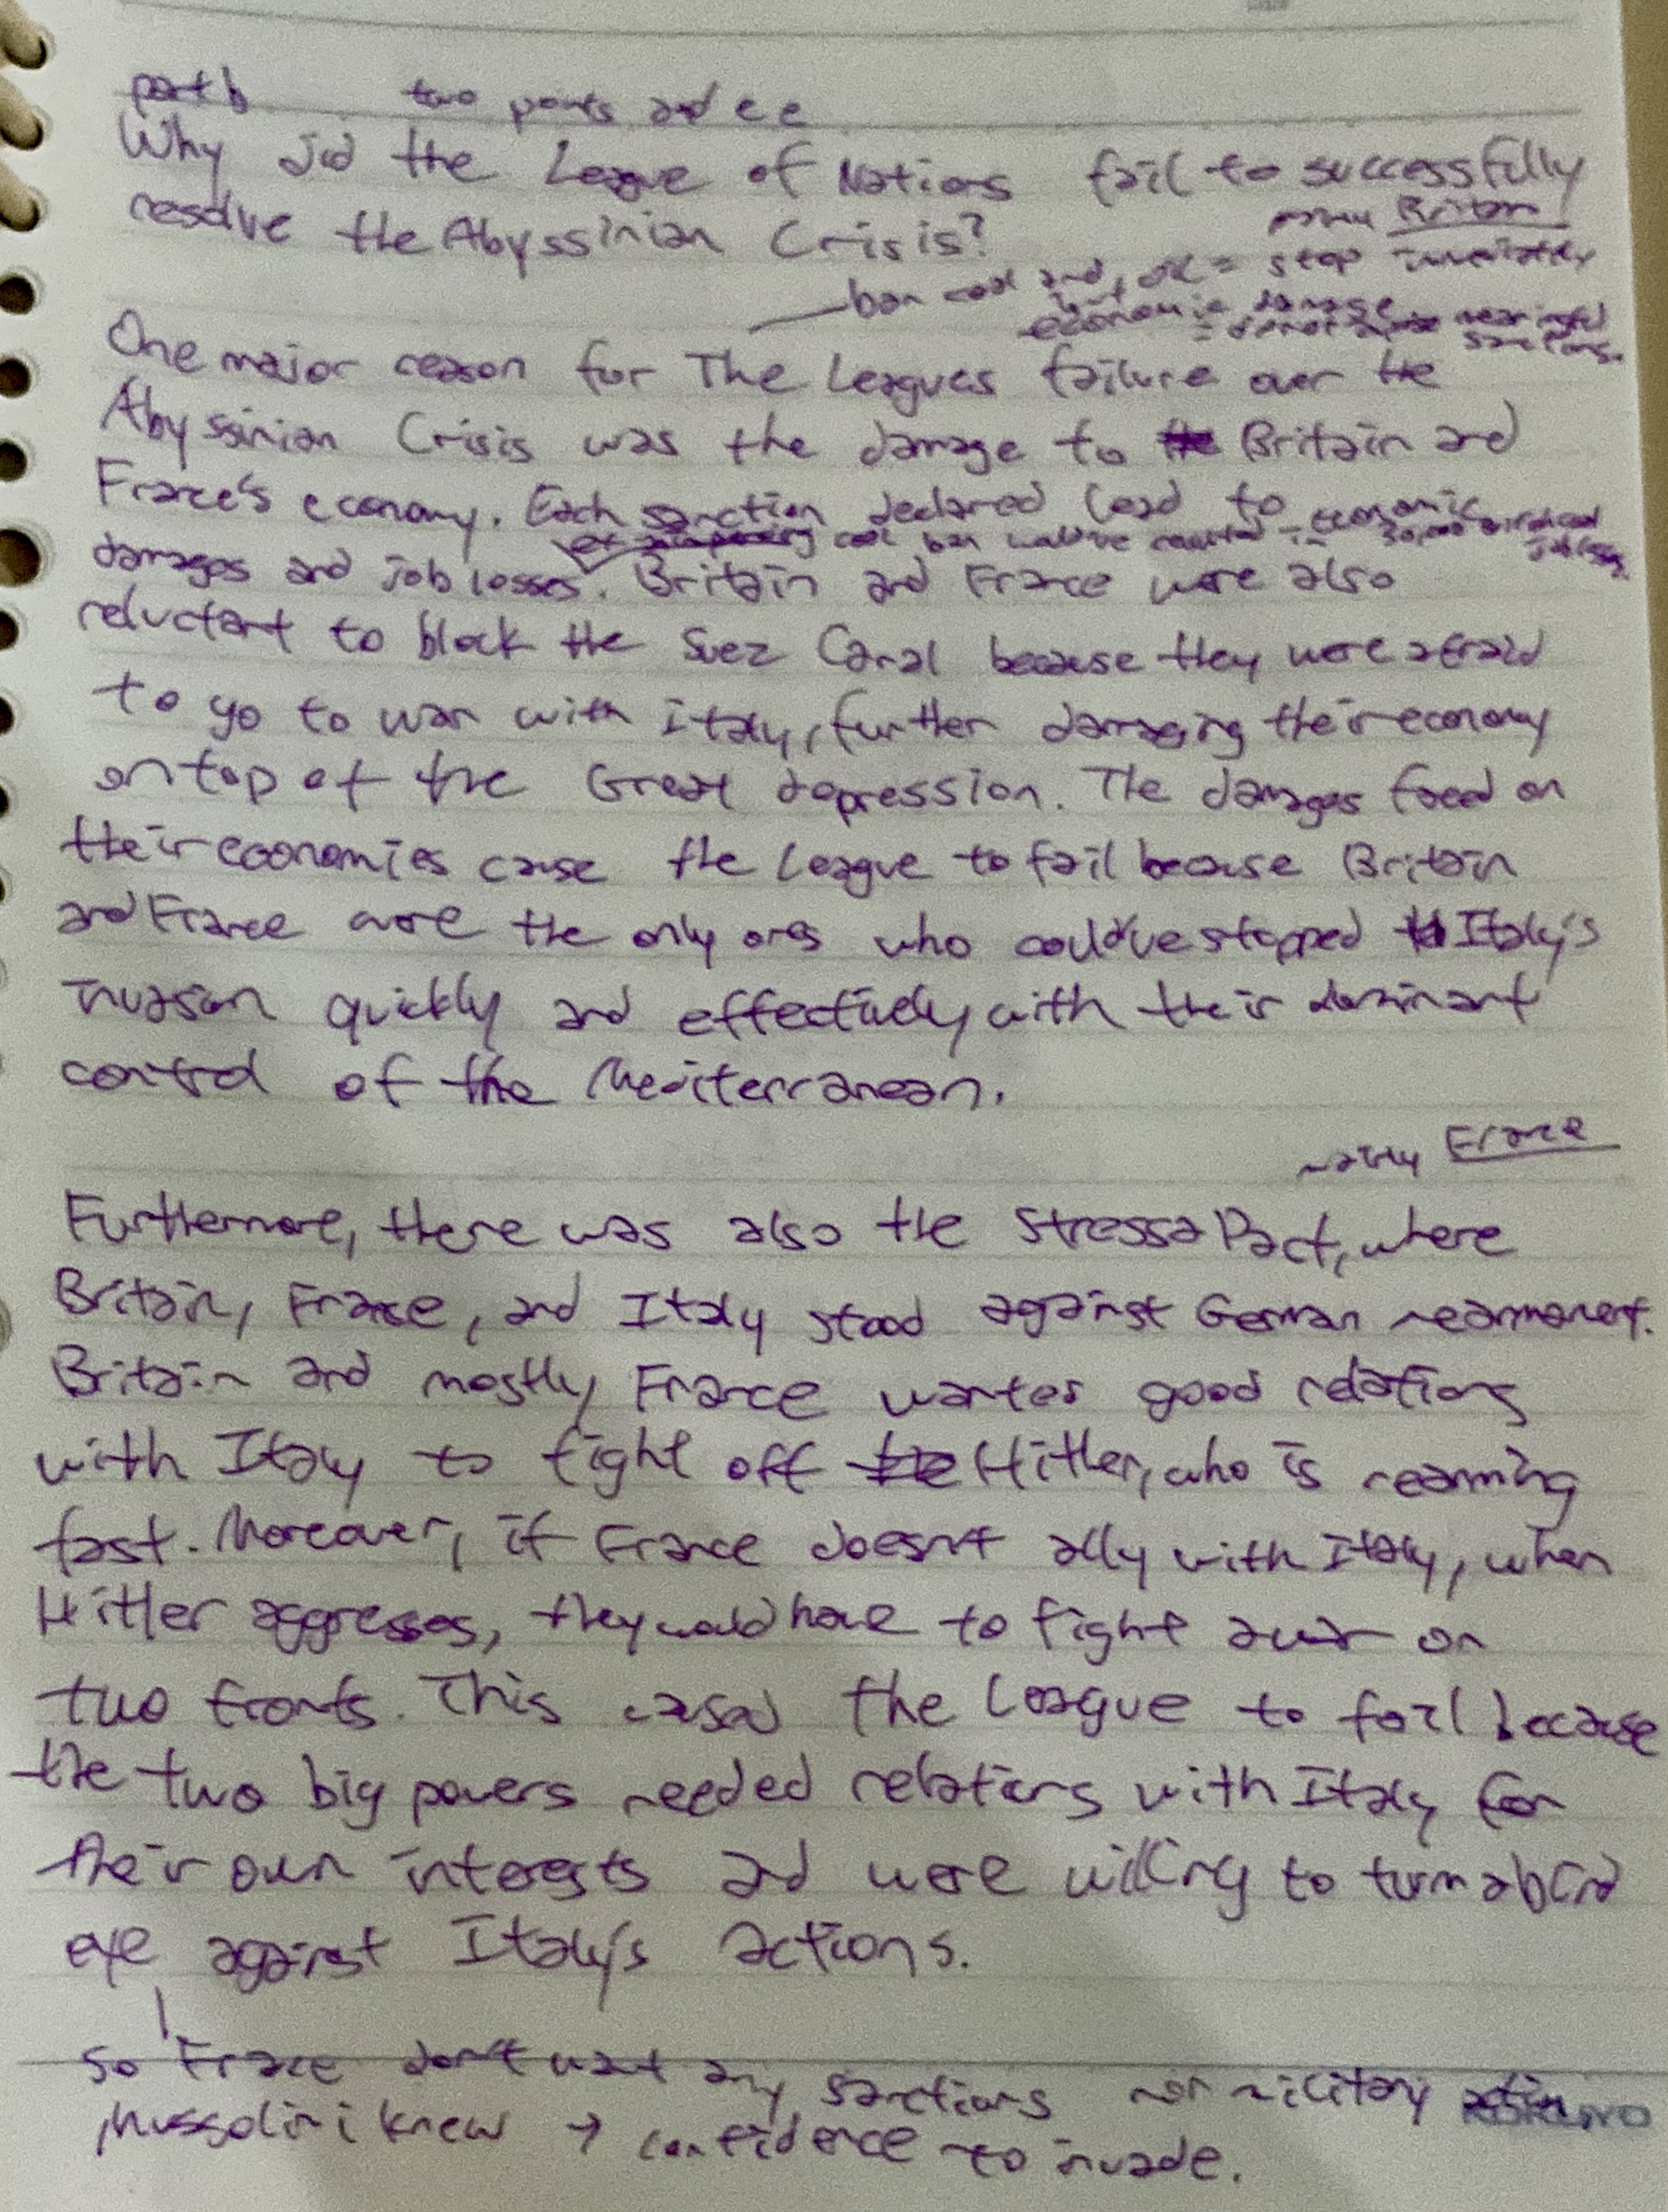 part b two points and e e
Why did the League of Nations fail to successfully
resolve the Abyssinian Crisis?
Britain
ban coal and oil = stop immediately
but economic damage
= do not meaningful sanctions.
One major reason for The Leagues failure over the
Abyssinian Crisis was the damage to the Britain and
France's economy. Each sanction declared lead to economic
coal ban would've resulted in 30,000 british coal job loss
damages and job losses. Britain and France were also
reluctant to block the Suez Canal because they were afraid
to go to war with italy, further damaging their economy
on top of the Great depression. The damages faced on
their economies cause the League to fail because Britain
and France were the only ones who could've stopped Italy's
invasion quickly and effectively with their dominant
control of the Mediterranean.
mainly France
Furthermore, there was also the Stressa Pact, where
Britain, France, and Italy stood against German rearmament.
Britain and mostly France wanted good relations
with Italy to fight off the Hitler, who is rearming
fast. Moreover, if France doesn't ally with Italy, when
Hitler aggresses, they would have to fight a war on
two fronts. This caused the League to fail because
the two big powers needed relations with Italy for
their own interests and were willing to turn a blind
eye against Italy's actions.
so France don't want any sanctions nor military action
Mussolini knew → confidence to invade.